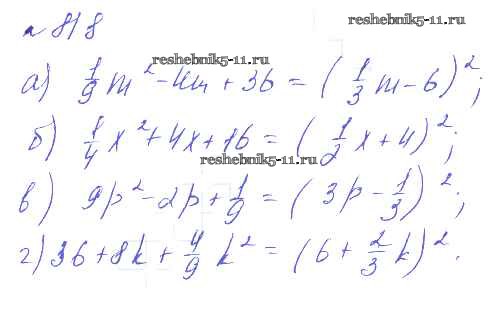 № 818
reshebnik5-11.ru
reshebnik5-11.ru
а) 1/9 m² - 4m + 36 = (1/3 m - 6)²;
б) 1/4 x² + 4x + 16 = (1/2 x + 4)²;
reshebnik5-11.ru
в) 9p² - 2p + 1/9 = (3p - 1/3)²;
г) 36 + 8k + 4/9 k² = (6 + 2/3 k)².